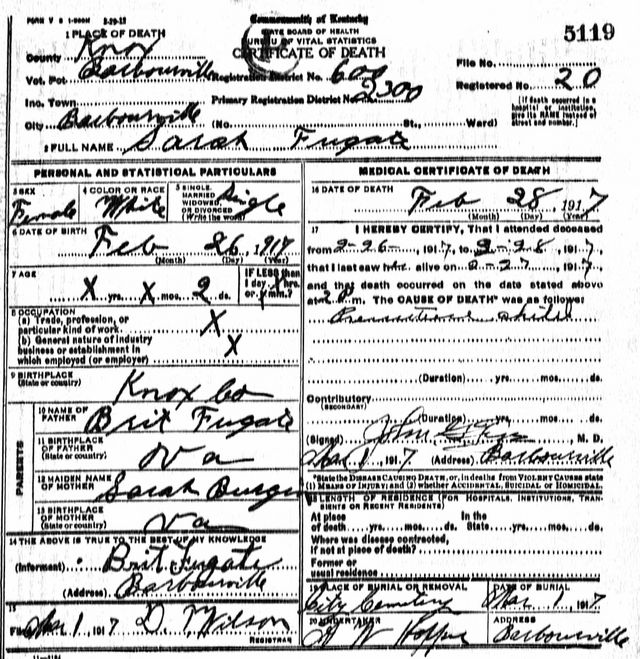 FORM V S 1-500M 3-29-12
Commonwealth of Kentucky
STATE BOARD OF HEALTH
BUREAU OF VITAL STATISTICS
CERTIFICATE OF DEATH
5119
1 PLACE OF DEATH
County Knox
Vot. Pct Barbourville Registration District No. 600
File No.
Inc. Town Primary Registration District No. 2300
Registered No. 20
City Barbourville (No. St., Ward)
[If death occurred in a hospital or institution, give its NAME instead of street and number.]
2 FULL NAME Sarah Fugate
PERSONAL AND STATISTICAL PARTICULARS
3 SEX Female
4 COLOR OR RACE White
5 SINGLE, MARRIED WIDOWED, OR DIVORCED (Write the word) Single
6 DATE OF BIRTH
Feb 26, 1917
(Month) (Day) (Year)
7 AGE
X yrs. X mos. 2 ds.
IF LESS than 1 day X hrs. or X min.?
8 OCCUPATION
(a) Trade, profession, or particular kind of work X
(b) General nature of industry business or establishment in which employed (or employer) X
9 BIRTHPLACE (State or country)
Knox Co
PARENTS
10 NAME OF FATHER Brit Fugate
11 BIRTHPLACE OF FATHER (State or country) Va
12 MAIDEN NAME OF MOTHER Sarah
13 BIRTHPLACE OF MOTHER (State or country) Va
14 THE ABOVE IS TRUE TO THE BEST OF MY KNOWLEDGE
(Informant) Brit Fugate
(Address) Barbourville
15
Filed Mar 1 1917 D. Wilson
REGISTRAR
MEDICAL CERTIFICATE OF DEATH
16 DATE OF DEATH
Feb 28, 1917
(Month) (Day) (Year)
17 I HEREBY CERTIFY, That I attended deceased
from 2-26- 1917, to 2-28, 1917,
that I last saw alive on 2-27, 1917,
and that death occurred on the date stated above
at 2 m. The CAUSE OF DEATH* was as follows:
Premature child
(Duration) yrs. mos. ds.
Contributory
(SECONDARY)
(Duration) yrs. mos. ds.
(Signed) John M. D.
Mar 1, 1917 (Address) Barbourville
*State the DISEASE CAUSING DEATH, or, in deaths from VIOLENT CAUSES state (1) MEANS OF INJURY; and (2) whether ACCIDENTAL, SUICIDAL or HOMICIDAL.
18 LENGTH OF RESIDENCE (FOR HOSPITALS, INSTITUTIONS, TRANSIENTS OR RECENT RESIDENTS)
At place of death yrs. mos. ds. In the State yrs. mos. ds.
Where was disease contracted, if not at place of death?
Former or usual residence
19 PLACE OF BURIAL OR REMOVAL
City Cemetery
DATE OF BURIAL
Mar 1, 1917
20 UNDERTAKER
ADDRESS
Barbourville